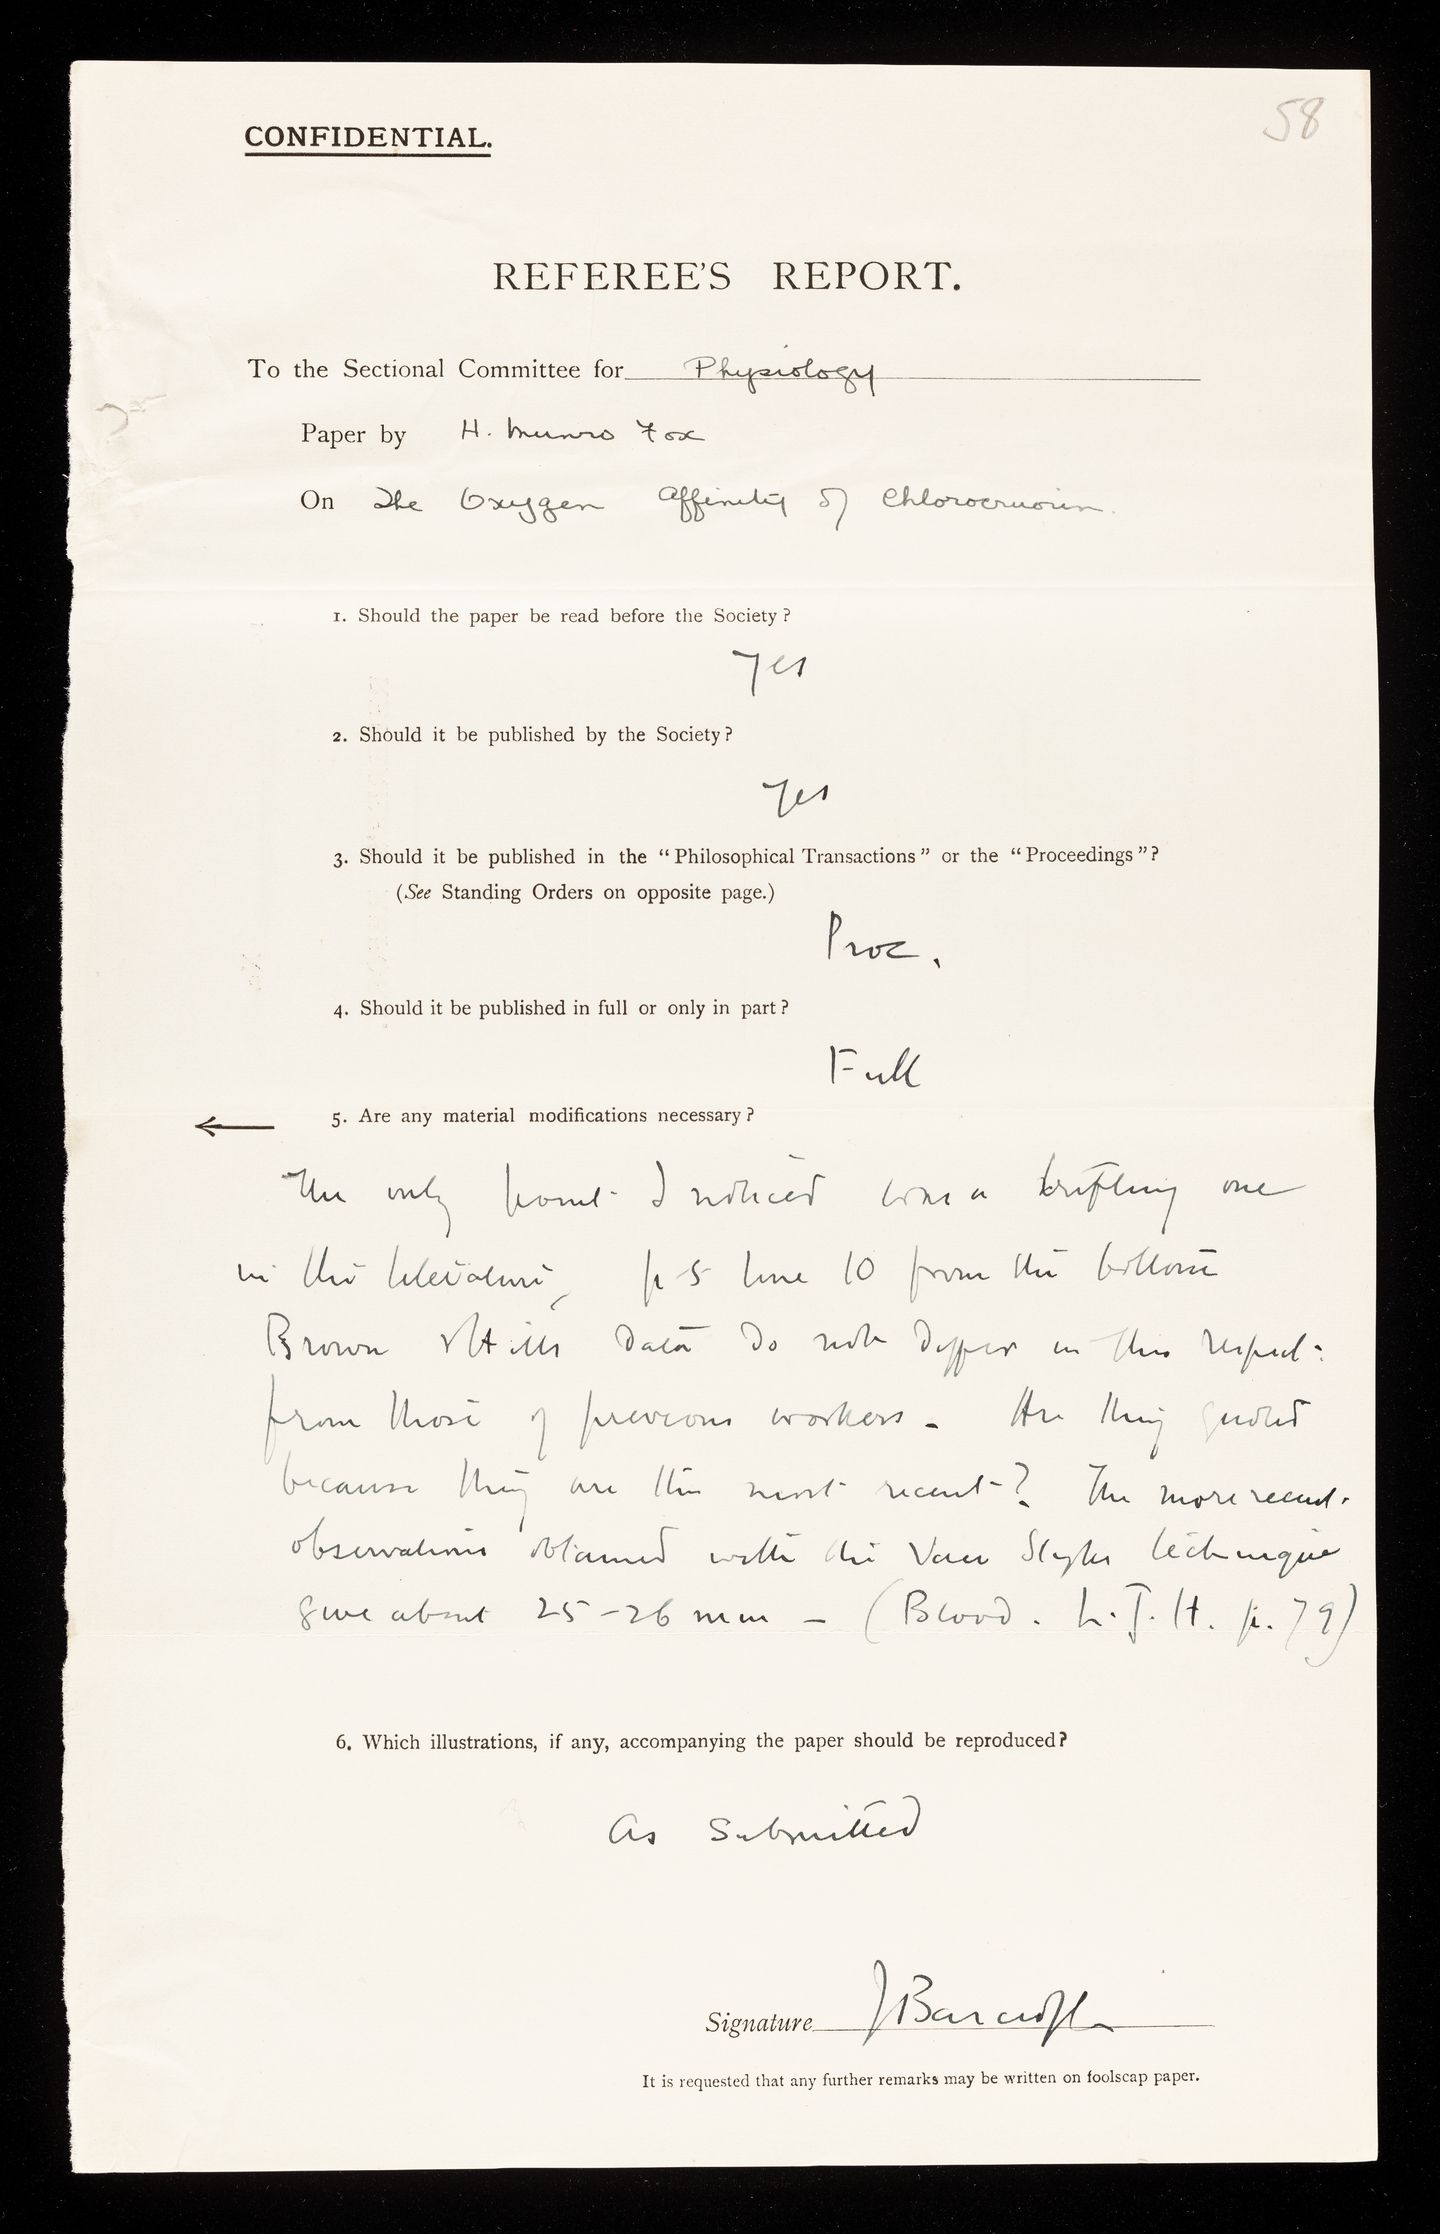 58
CONFIDENTIAL.
REFEREE'S REPORT.
To the Sectional Committee for Physiology
Paper by H. Munro Fox
On The Oxygen Affinity of Chlorocruorin.
1. Should the paper be read before the Society?
Yes
2. Should it be published by the Society?
Yes
3. Should it be published in the "Philosophical Transactions" or the "Proceedings"?
(See Standing Orders on opposite page.)
Proc.
4. Should it be published in full or only in part?
Full
5. Are any material modifications necessary?
The only point I noticed was a trifling one
in the literature, p 5 line 10 from the bottom
Brown & Hills data do not differ in this respect
from those of previous workers - Are they quoted
because they are the most recent? The more recent
observations obtained with the Van Slyke technique
give about 25-26 mm - (Blood. L. J. H. p. 79)
6. Which illustrations, if any, accompanying the paper should be reproduced?
As Submitted
Signature J Barcroft
It is requested that any further remarks may be written on foolscap paper.